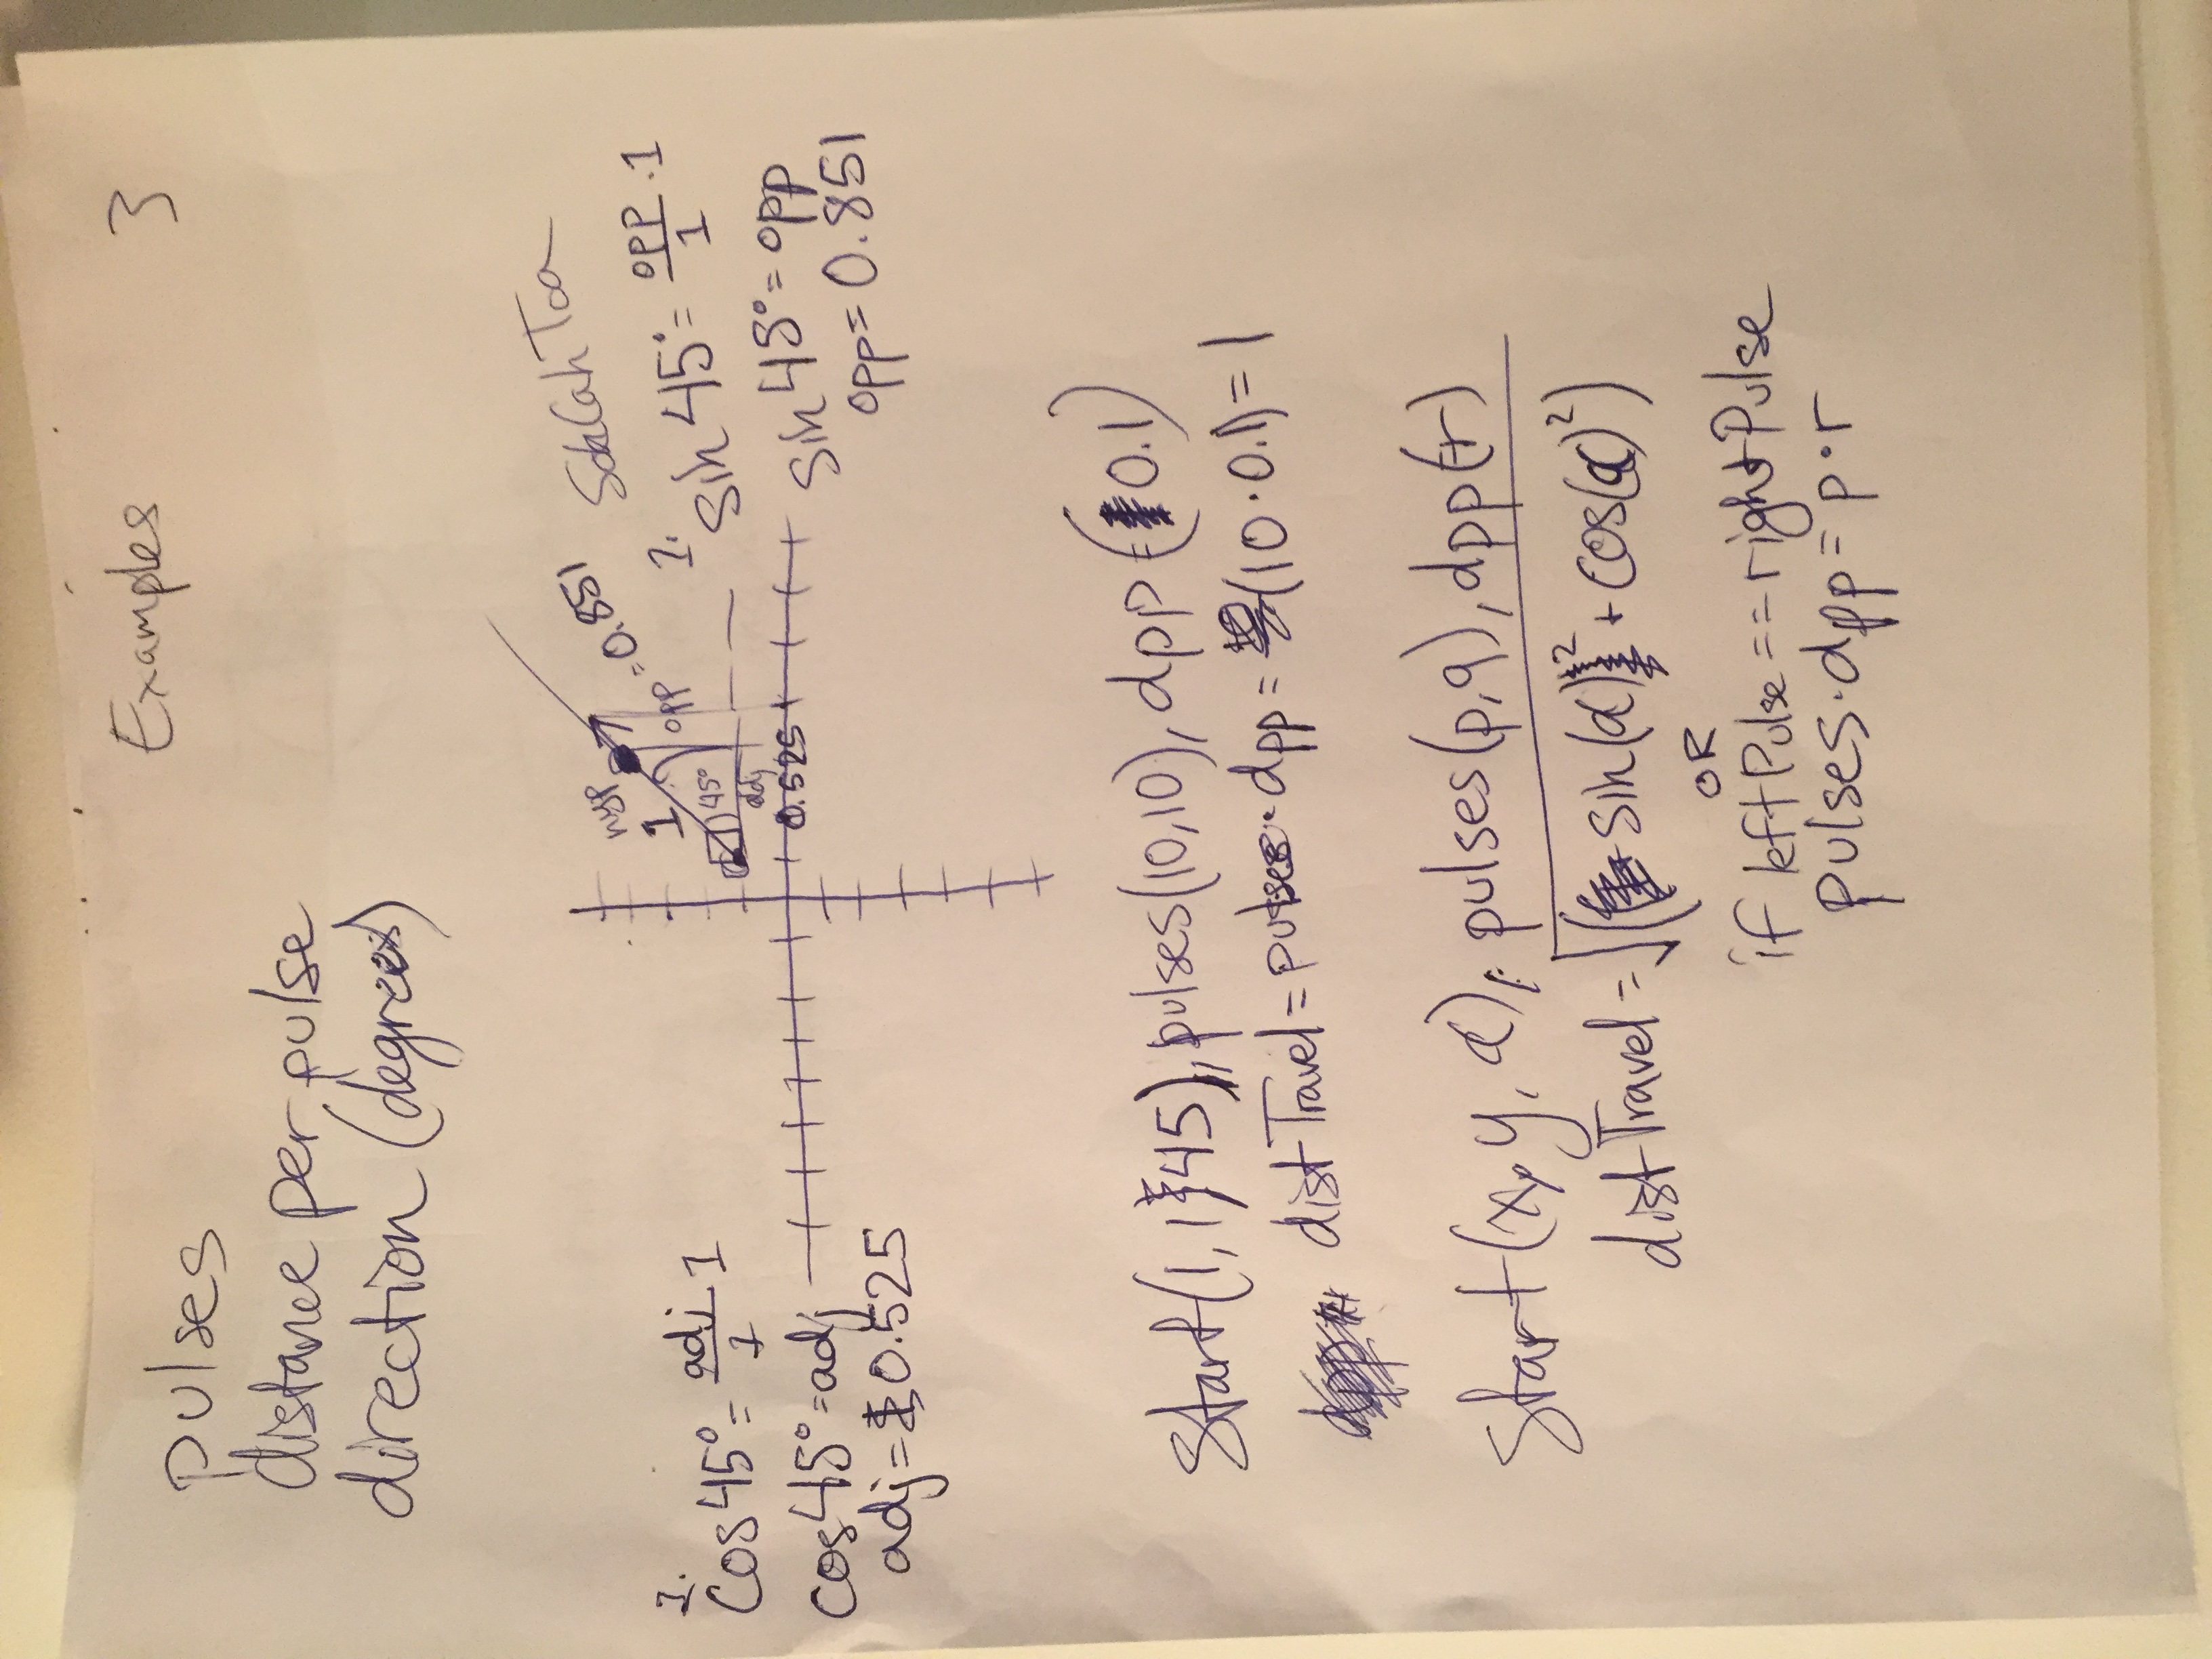 Examples 3
pulses
distance per pulse
direction (degrees)
SohCahToa
nyp
1
opp = 0.851
45°
adj
0.525
1.
cos 45° = adj/1 · 1
cos 45° = adj
adj = 0.525
1.
sin 45° = opp/1 · 1
sin 45° = opp
opp = 0.851
Start(1, 1, 45), pulses(10,10), dpp(0.1)
distTravel = pulses · dpp = (10 · 0.1) = 1
Start(x, y, α), pulses(p,q), dpp(r)
distTravel = √((sin(α)² + cos(α)²)
OR
if leftPulse == rightPulse
pulses · dpp = p · r